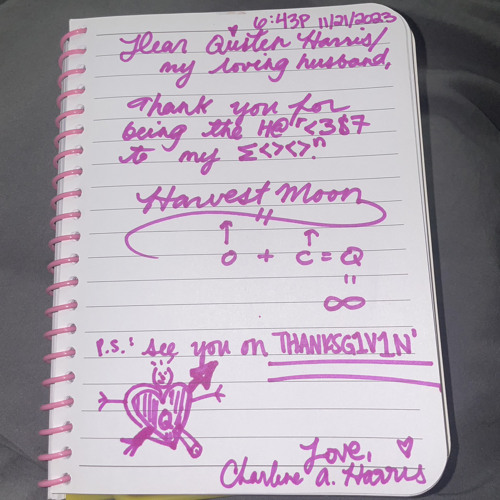 6:43P 11/21/2023
Dear Quster Harris/
my loving husband,
Thank you for
being the H@r<3$7
to my Σ<><>n.
Harvest Moon
O + C = Q
=
∞
P.S.: see you on THANKSG1V1N'
Q
Love, ♡
Charlene A. Harris